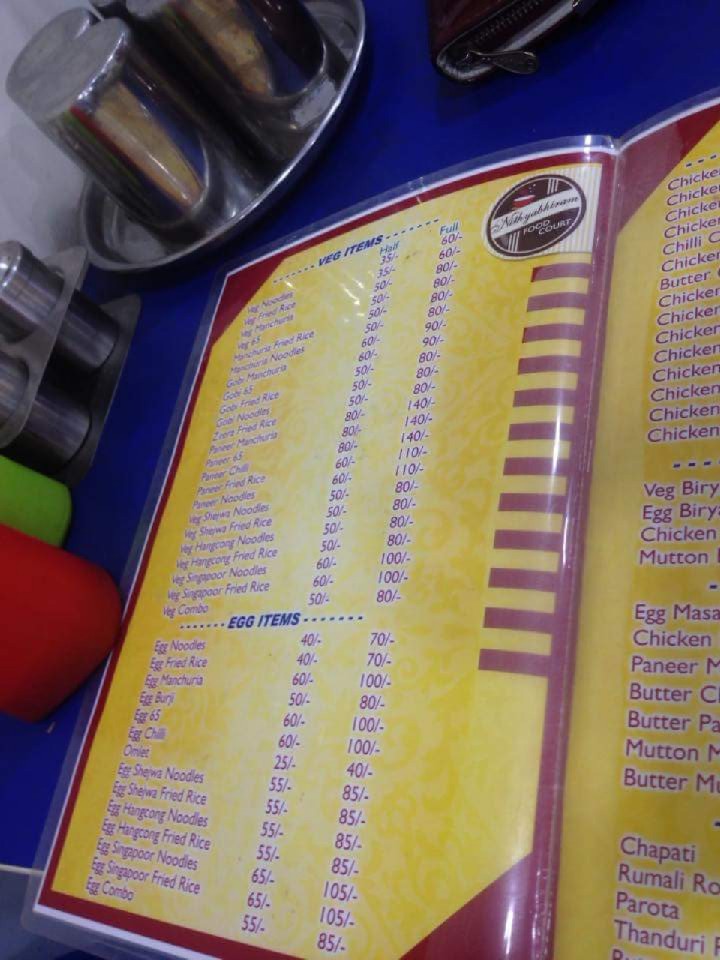 Nithyabhiram
FOOD COURT
VEG ITEMS
Half Full
Veg Noodles 35/- 60/-
Veg Fried Rice 35/- 60/-
Veg Manchuria 50/- 80/-
Veg 65 50/- 80/-
Manchuria Fried Rice 50/- 80/-
Manchuria Noodles 50/- 80/-
Gobi Manchuria 60/- 90/-
Gobi 65 60/- 90/-
Gobi Fried Rice 50/- 80/-
Gobi Noodles 50/- 80/-
Zeera Fried Rice 50/- 80/-
Paneer Manchuria 80/- 140/-
Paneer 65 80/- 140/-
Paneer Chilli 80/- 140/-
Paneer Fried Rice 60/- 110/-
Paneer Noodles 60/- 110/-
Veg Shejwa Noodles 50/- 80/-
Veg Shejwa Fried Rice 50/- 80/-
Veg Hangcong Noodles 50/- 80/-
Veg Hangcong Fried Rice 50/- 80/-
Veg Singapoor Noodles 60/- 100/-
Veg Singapoor Fried Rice 60/- 100/-
Veg Combo 50/- 80/-
EGG ITEMS
Egg Noodles 40/- 70/-
Egg Fried Rice 40/- 70/-
Egg Manchuria 60/- 100/-
Egg Burji 50/- 80/-
Egg 65 60/- 100/-
Egg Chilli 60/- 100/-
Omlet 25/- 40/-
Egg Shejwa Noodles 55/- 85/-
Egg Shejwa Fried Rice 55/- 85/-
Egg Hangcong Noodles 55/- 85/-
Egg Hangcong Fried Rice 55/- 85/-
Egg Singapoor Noodles 65/- 105/-
Egg Singapoor Fried Rice 65/- 105/-
Egg Combo 55/- 85/-
Chicke
Chicke
Chicke
Chicke
Chilli C
Chicken
Butter
Chicken
Chicken
Chicken
Chicken
Chicken
Chicken
Chicken
Chicken
Veg Biry
Egg Birya
Chicken
Mutton
Egg Masa
Chicken
Paneer M
Butter C
Butter Pa
Mutton M
Butter Mu
Chapati
Rumali Ro
Parota
Thanduri